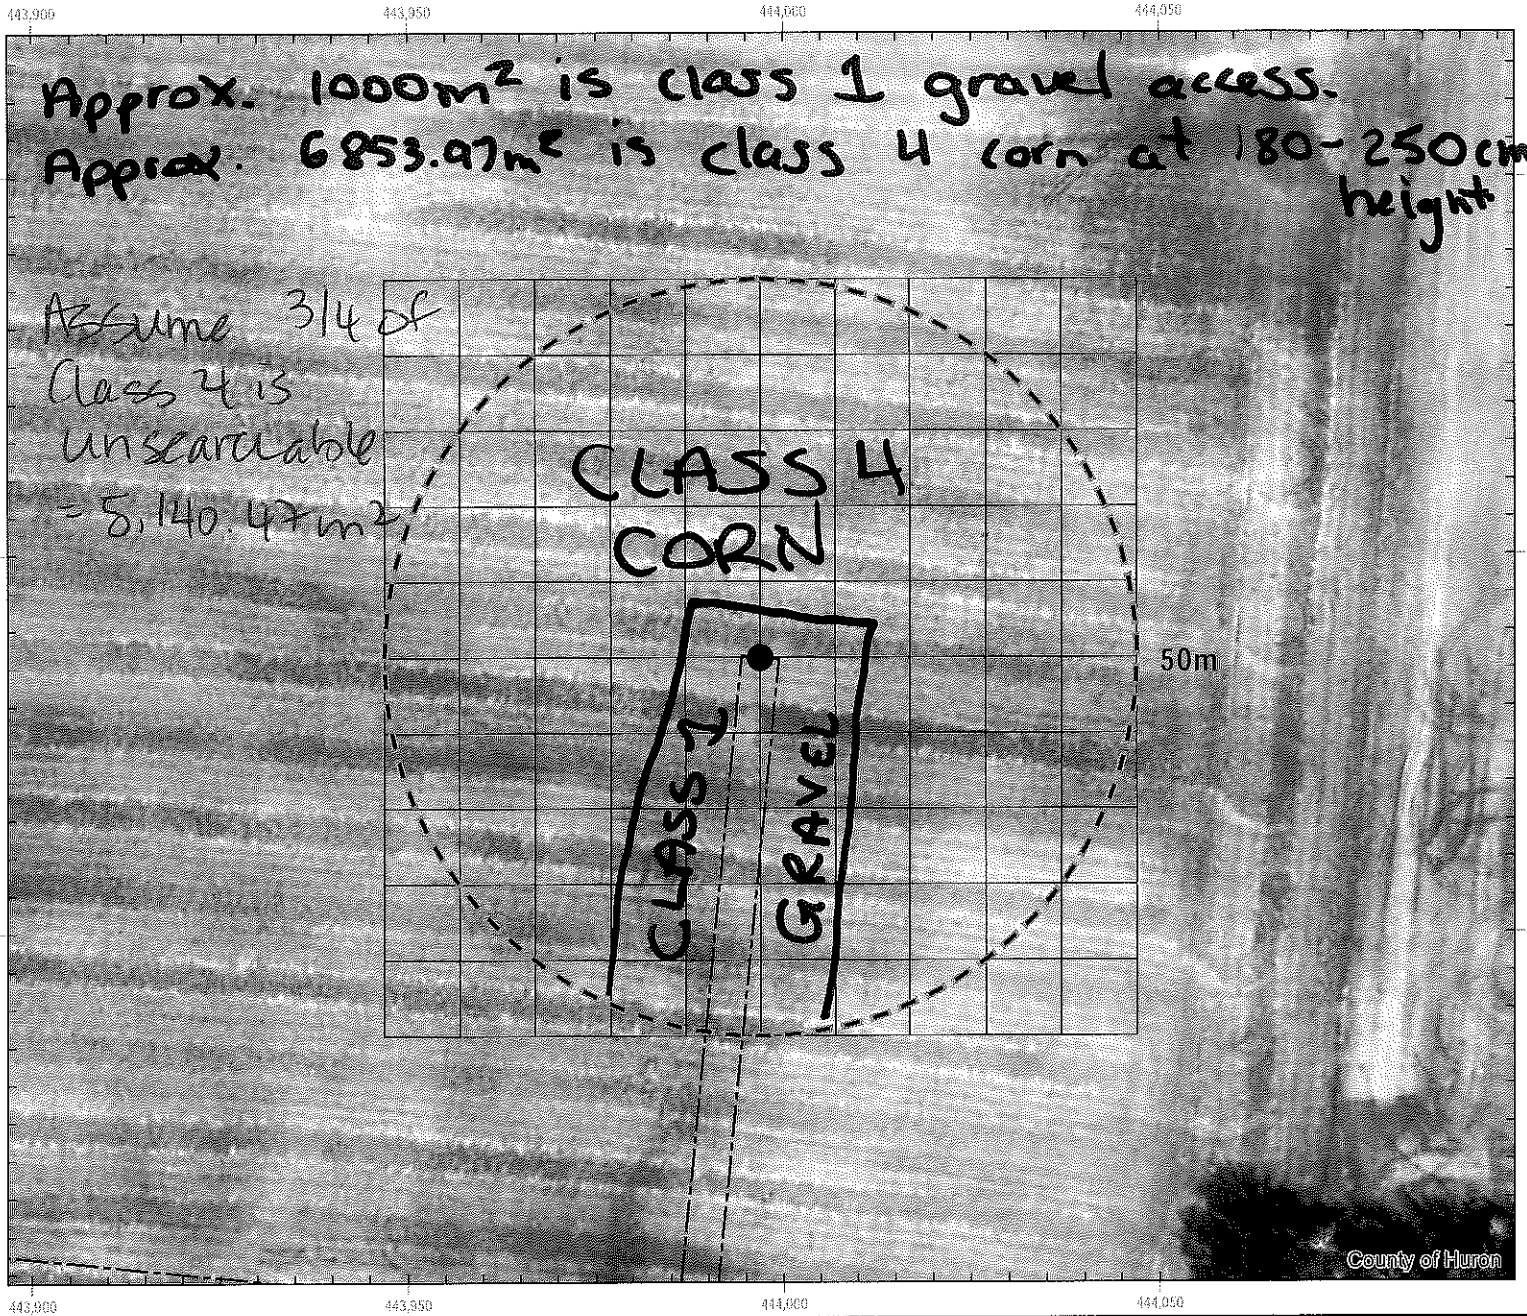 443,900 443,950 444,000 444,050
Approx. 1000m² is class 1 gravel access.
Approx. 6853.97m² is class 4 corn at 180-250cm
height
Assume 3/4 of
Class 4 is
unsearchable
= 5,140.47m²
CLASS 4
CORN
50m
CLASS 1
GRAVEL
County of Huron
443,900 443,950 444,000 444,050